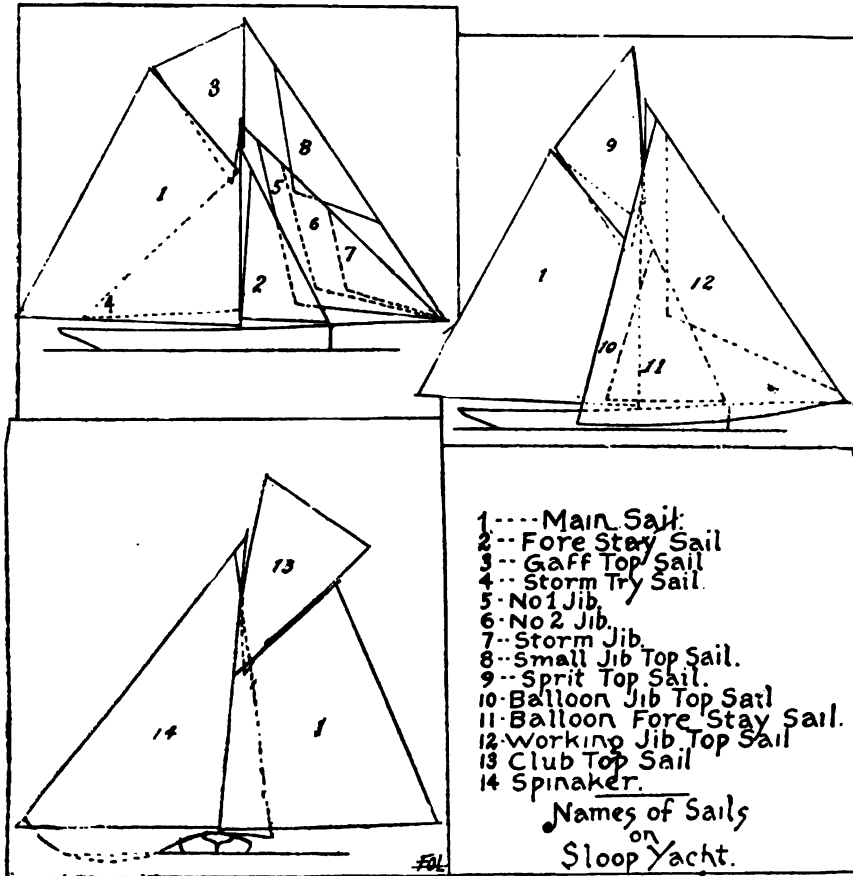 3
8
1
5
6
7
2
4
9
1
12
10
11
13
14
1
1---- Main Sail.
2-- Fore Stay Sail
3-- Gaff Top Sail
4-- Storm Try Sail.
5- No 1 Jib.
6- No 2 Jib.
7-- Storm Jib.
8-- Small Jib Top Sail.
9-- Sprit Top Sail.
10- Balloon Jib Top Sail
11- Balloon Fore Stay Sail.
12. Working Jib Top Sail
13 Club Top Sail
14 Spinaker.
Names of Sails
on
Sloop Yacht.